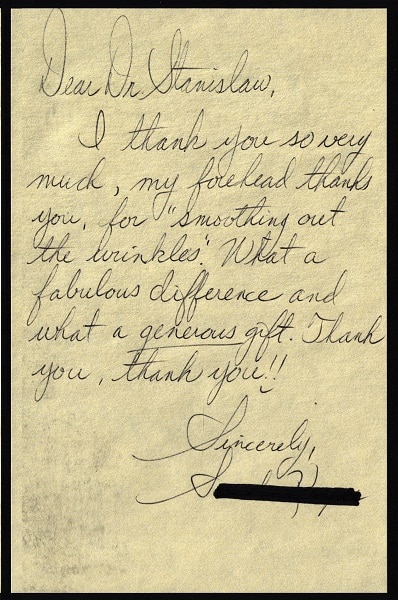 Dear Dr. Stanislaw,
I thank you so very
much, my forehead thanks
you, for "smoothing out
the wrinkles". What a
fabulous difference and
what a generous gift. Thank
you, thank you!!
Sincerely,